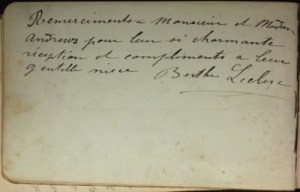 Remerciments à Monsieur et Madame
Andrews pour leur si charmante
réception et compliments à leur
gentille nièce Berthe Leclerc